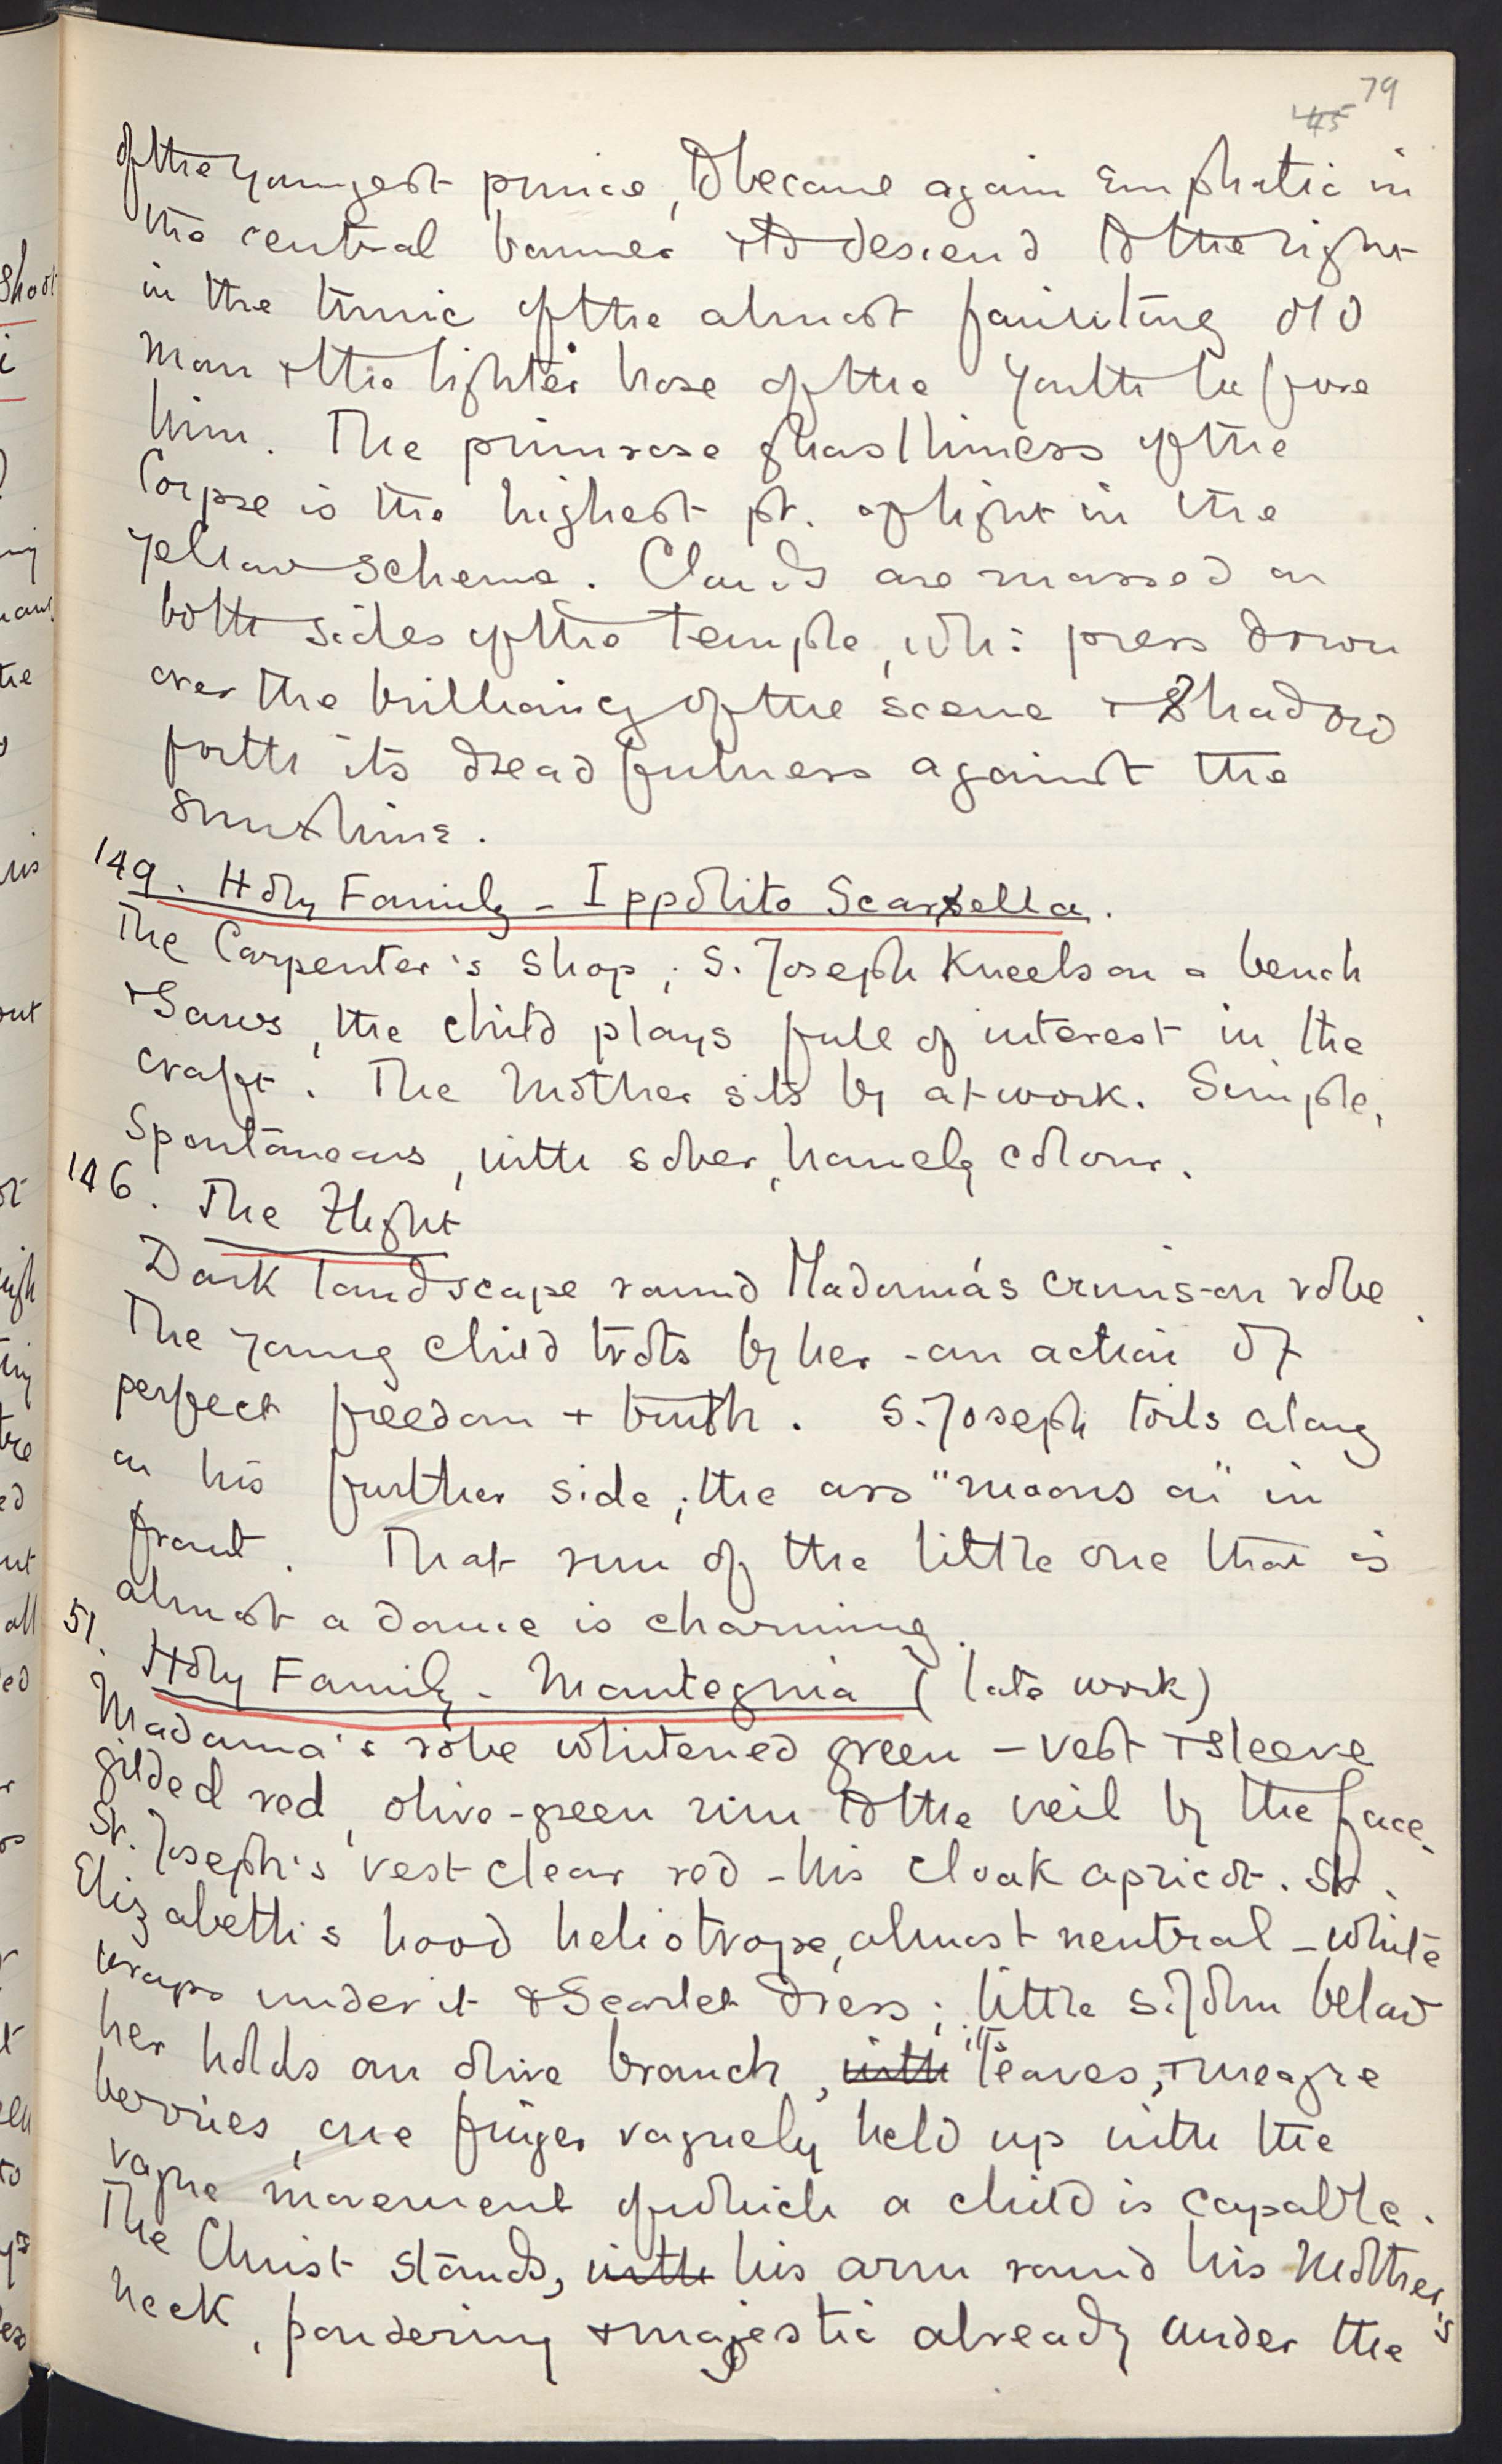 79
45
of the youngest prince, to become again emphatic in
the central banner & to descend to the right
in the tunic of the almost fainting old
man & the lighter hose of the youth before
him. The primrose ghastliness of the
Corpse is the highest pt. of light in the
yellow scheme. Clouds are massed on
both sides of the temple, wh: press down
over the brilliancy of the scene & shadow
forth its dreadfulness against the
sunshine.
149. Holy Family - Ippolito Scarsella.
The Carpenter's shop; S. Joseph kneels on a bench
& saws, the child plays full of interest in the
craft. The Mother sits by at work. Simple,
Spontaneous, with sober, homely colour.
146. The Flight
Dark landscape round Madonna's crimson robe.
The young child trots by her - an action of
perfect freedom + truth. S. Joseph toils along
on his further side; the ass "moons on" in
front. That run of the little one that is
almost a dance is charming.
51. Holy Family - Mantegna (late work)
Madonna's robe whitened green - vest & sleeve
gilded red, olive-green rim to the veil by the face.
St. Joseph's vest clear red - his cloak apricot. St.
Elizabeth's hood heliotrope, almost neutral - white
wraps under it & scarlet dress; little S. John below
her holds an olive branch, with its leaves, & meagre
berries, one finger vaguely held up with the
vague movement of which a child is capable.
The Christ stands, with his arm round his Mother's
neck, pondering & majestic already under the